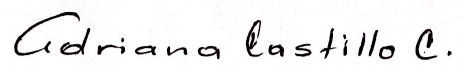 Adriana Castillo C.